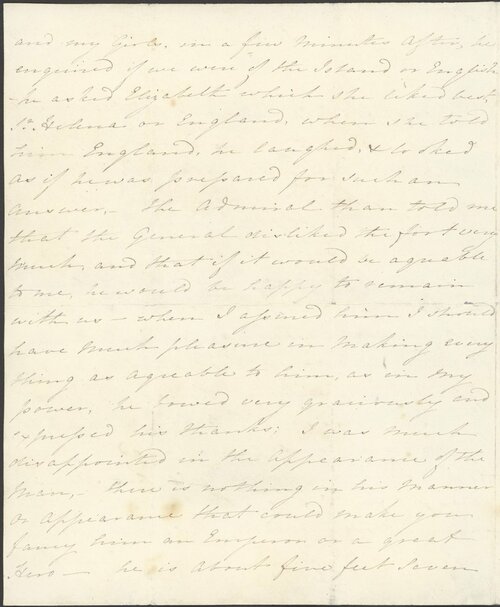 and my Girls, in a few minutes after, he
enquired if we were of the Island or English
- he asked Elizabeth which she liked best,
St. Helena or England, when she told
him England, he laughed, & looked
as if he was prepared for such an
answer, - the Admiral than told me
that the General disliked the fort very
much, and that if it would be agreable
to me, he would be happy to remain
with us - when I assured him I should
have much pleasure in making every
thing as agreable to him, as in my
power, he bowed very graciously and
expressed his thanks; I was much
disappointed in the appearance of the
Man, - there is nothing in his Manner
or appearance that could make you
fancy him an Emperor or a great
Hero - he is about five feet seven